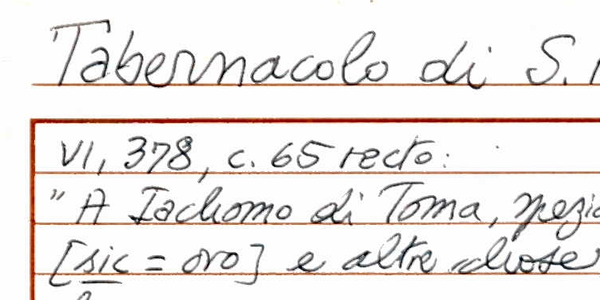 Tabernacolo di S.
VI, 378, c. 65 recto:
" A Iachomo di Toma,
[sic = oro] e altre chose